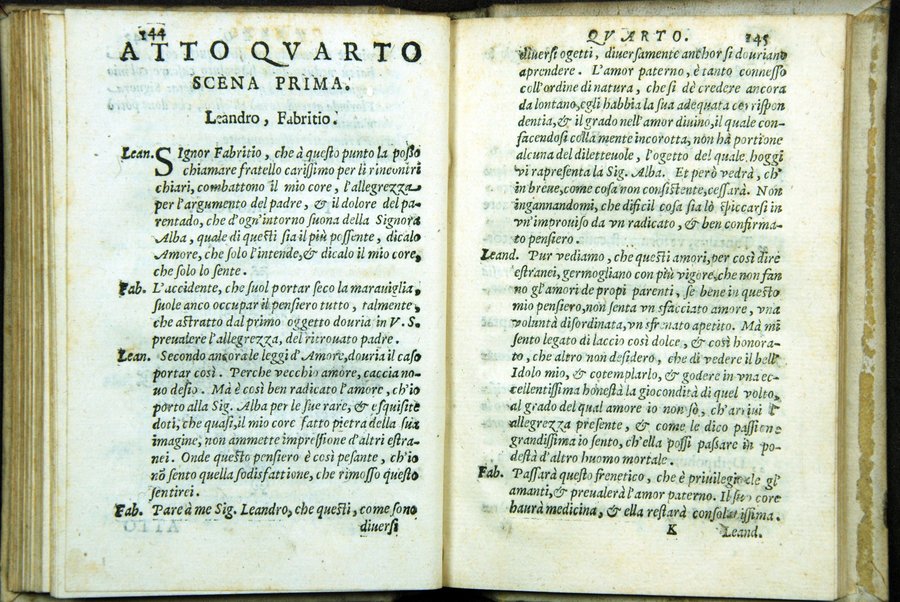 144
ATTO QVARTO
SCENA PRIMA.
Leandro, Fabritio.
Lean. SIgnor Fabritio, che à questo punto la posso
chiamare fratello carissimo per li rincontri
chiari, combattono il mio core, l'allegrezza
per l'argumento del padre, & il dolore del pa-
rentado, che d'ogn'intorno suona della Signora
Alba, quale di questi sia il più possente, dicalo
Amore, che solo l'intende, & dicalo il mio core,
che solo lo sente.
Fab. L'accidente, che suol portar seco la marauiglia,
suole anco occupar il pensiero tutto, talmente,
che astratto dal primo oggetto douria in V. S.
preualere l'allegrezza, del ritrouato padre.
Lean. Secondo ancora le leggi d'Amore, douria il caso
portar così. Perche vecchio amore, caccia no-
uo desio. Mà è così ben radicato l'amore, ch'io
porto alla Sig. Alba per le sue rare, & esquisite
doti, che quasi, il mio core fatto pietra della sua
imagine, non ammette impressione d'altri estra-
nei. Onde questo pensiero è così pesante, ch'io
nõ sento quella sodisfattione, che rimosso questo
sentirei.
Fab. Pare à me Sig. Leandro, che questi, come sono
diuersi
QVARTO. 145
diuersi ogetti, diuersamente anchor si douriano
aprendere. L'amor paterno, è tanto connesso
coll'ordine di natura, che si dè credere ancora
da lontano, egli habbia la sua adequata correspon
dentia, & il grado nell'amor diuino, il quale con-
facendosi colla mente incorotta, non hà portione
alcuna del diletteuole, l'ogetto del quale hoggi
vi rapresenta la Sig. Alba. Et però vedrà, ch'
in breue, come cosa non consistente, cessarà. Non
ingannandomi, che dificil cosa sia lò spiccarsi in
vn'improuiso da vn radicato, & ben confirma-
to pensiero.
Leand. Pur vediamo, che questi amori, per così dire
estranei, germogliano con più vigore, che non fan
no gl'amori de propi parenti, se bene in questo
mio pensiero, non senta vn sfacciato amore, vna
voluntà disordinata, vn sfrenato apetito. Mà mi
sento legato di laccio così dolce, & così honora-
to, che altro non desidero, che di vedere il bell'
Idolo mio, & cōtemplarlo, & godere in vna ec-
cellentissima honestà la giocondità di quel volto,
al grado del qual amore io nõ sò, ch'arriui l'
allegrezza presente, & come le dico passione
grandissima io sento, ch'ella possi passare in po-
destà d'altro huomo mortale.
Fab. Passarà questo frenetico, che è priuilegio de gl'
amanti, & preualerà l'amor paterno. Il suo core
haurà medicina, & ella restarà consolatissima.
K Leand.